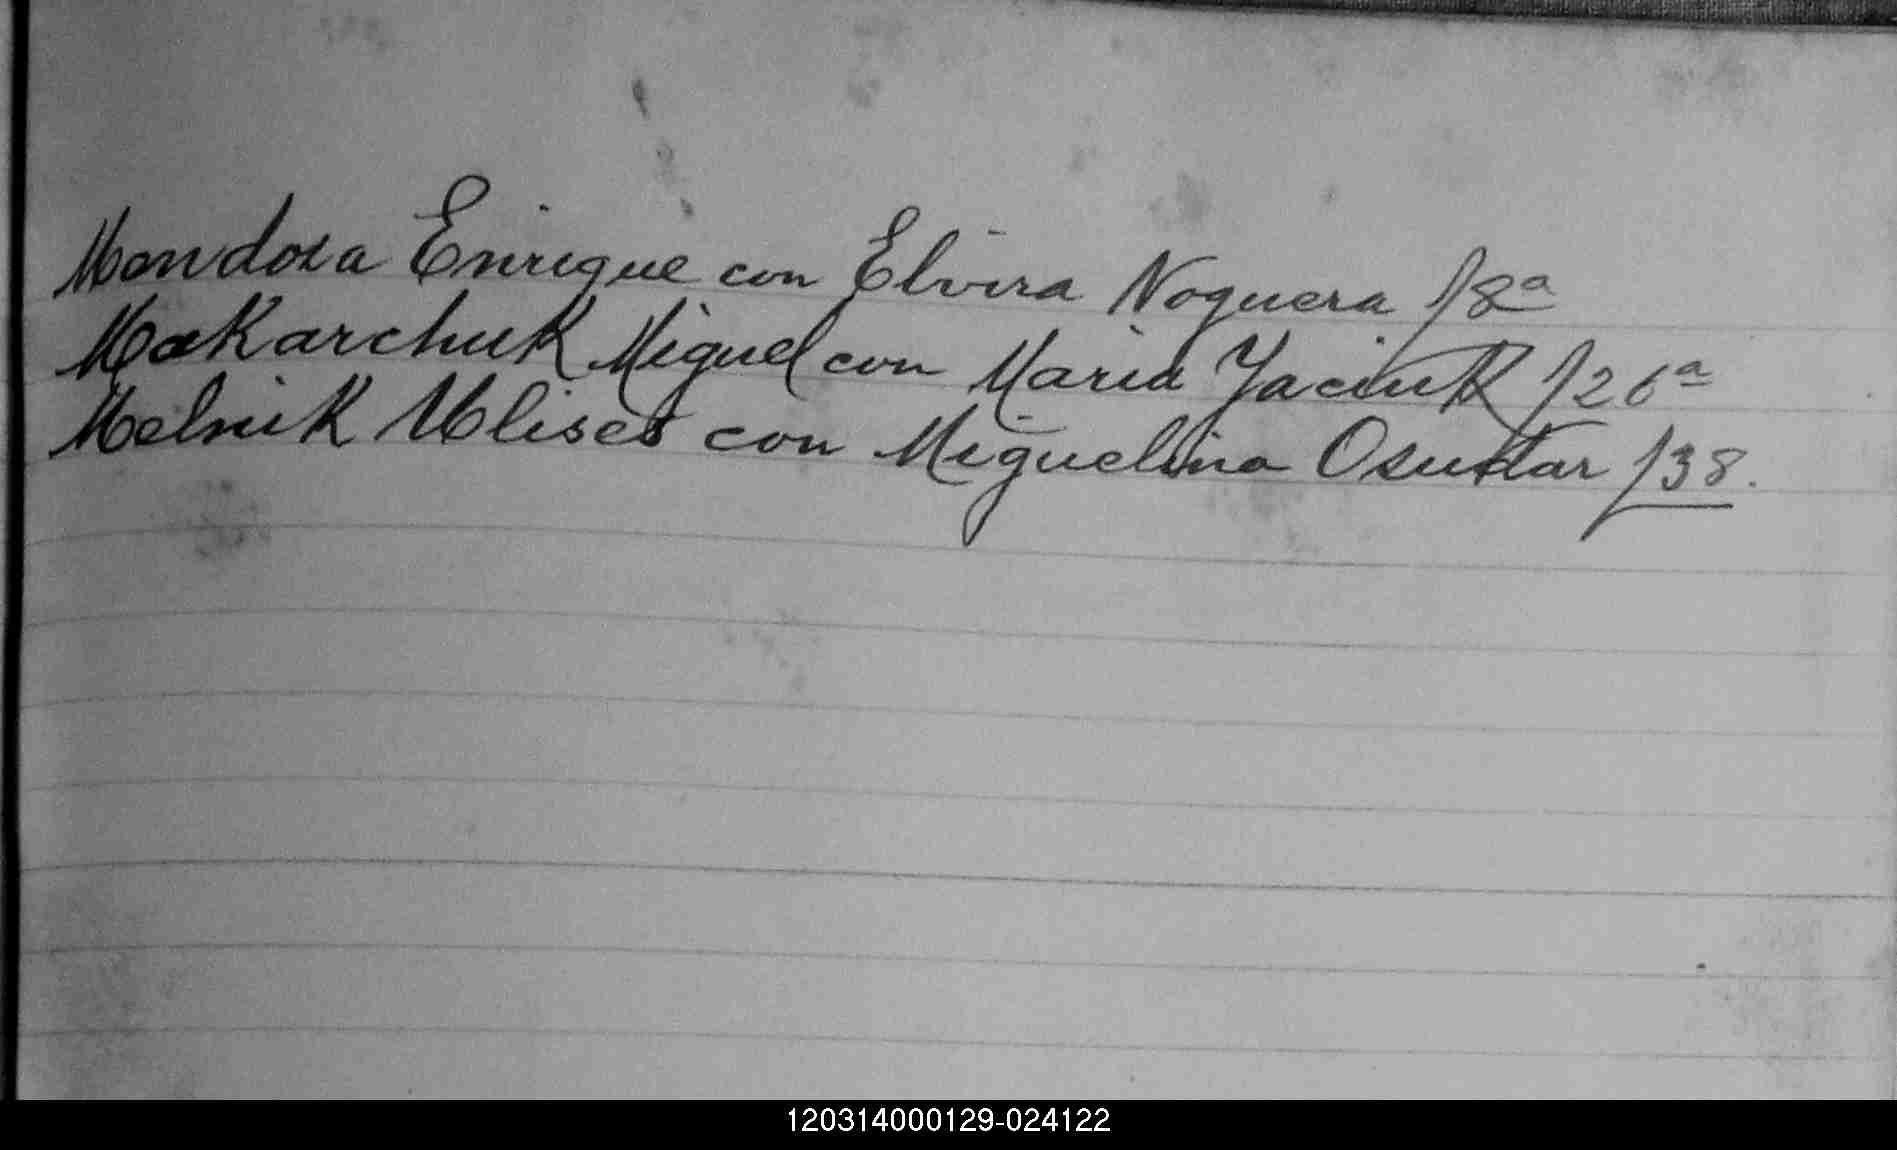 Mendoza Enrique con Elvira Noguera f 8a
Makarchuk Miguel con Maria Yaciuk f 26a
Melnik Ulises con Miguelina f 38.
120314000129-024122